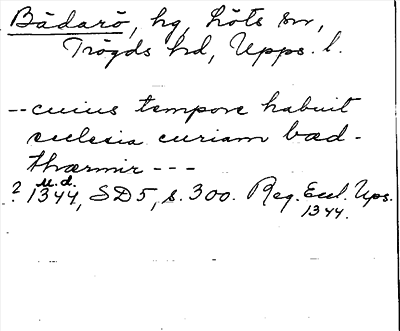 Bådarö, hg, Löts sn,
Trögds hd, Upps. l.
-- cuius tempore habuit
ecclesia curiam bæd-
thærmir ---
u.d.
? 1344, SD 5, s. 300. Reg. Eccl. Ups.
1344.